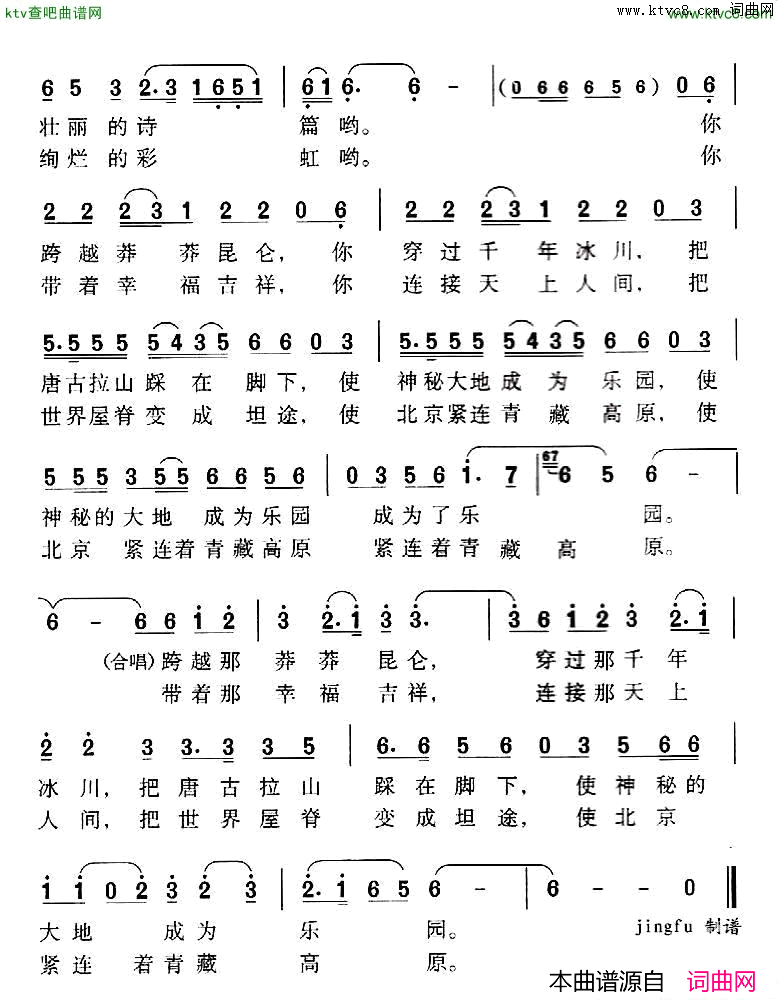 ktv查吧曲谱网
www.ktvc8.com 词曲网
www.ktvc8.com
6 5 3 2.3 1 6 5 1 6 1 6. 6 - (0 6 6 6 5 6) 0 6
壮丽的诗 篇哟。 你
绚烂的彩 虹哟。 你
2 2 2 3 1 2 2 0 6 2 2 2 3 1 2 2 0 3
跨越莽 莽昆仑, 你 穿过千 年冰川, 把
带着幸 福吉祥, 你 连接天 上人间, 把
5.5 5 5 5 4 3 5 6 6 0 3 5.5 5 5 5 4 3 5 6 6 0 3
唐古拉山踩 在 脚下, 使 神秘大地成 为 乐园, 使
世界屋脊变 成 坦途, 使 北京紧连青 藏 高原, 使
5 5 5 3 5 5 6 5 6 6 0 3 5 6 1. 7 67 6 5 6 -
神秘的大地 成为乐园 成为了乐 园。
北京 紧连着青藏高原 紧连着青 藏 高 原。
6 - 6 6 1 2 3 2.1 3 3. 3 6 1 2 3 2.1
(合唱)跨越那 莽莽 昆仑, 穿过那千年
带着那 幸福 吉祥, 连接那天上
2 2 3 3. 3 3 5 6. 6 5 6 0 3 5 6 6
冰川, 把唐古拉山 踩在脚下, 使神秘的
人间, 把世界屋脊 变成坦途, 使北京
1 1 0 2 3 2 3 2. 1 6 5 6 - 6 - - 0
大地 成为 乐 园。 jingfu 制谱
紧连 着青藏 高 原。
本曲谱源自 词曲网